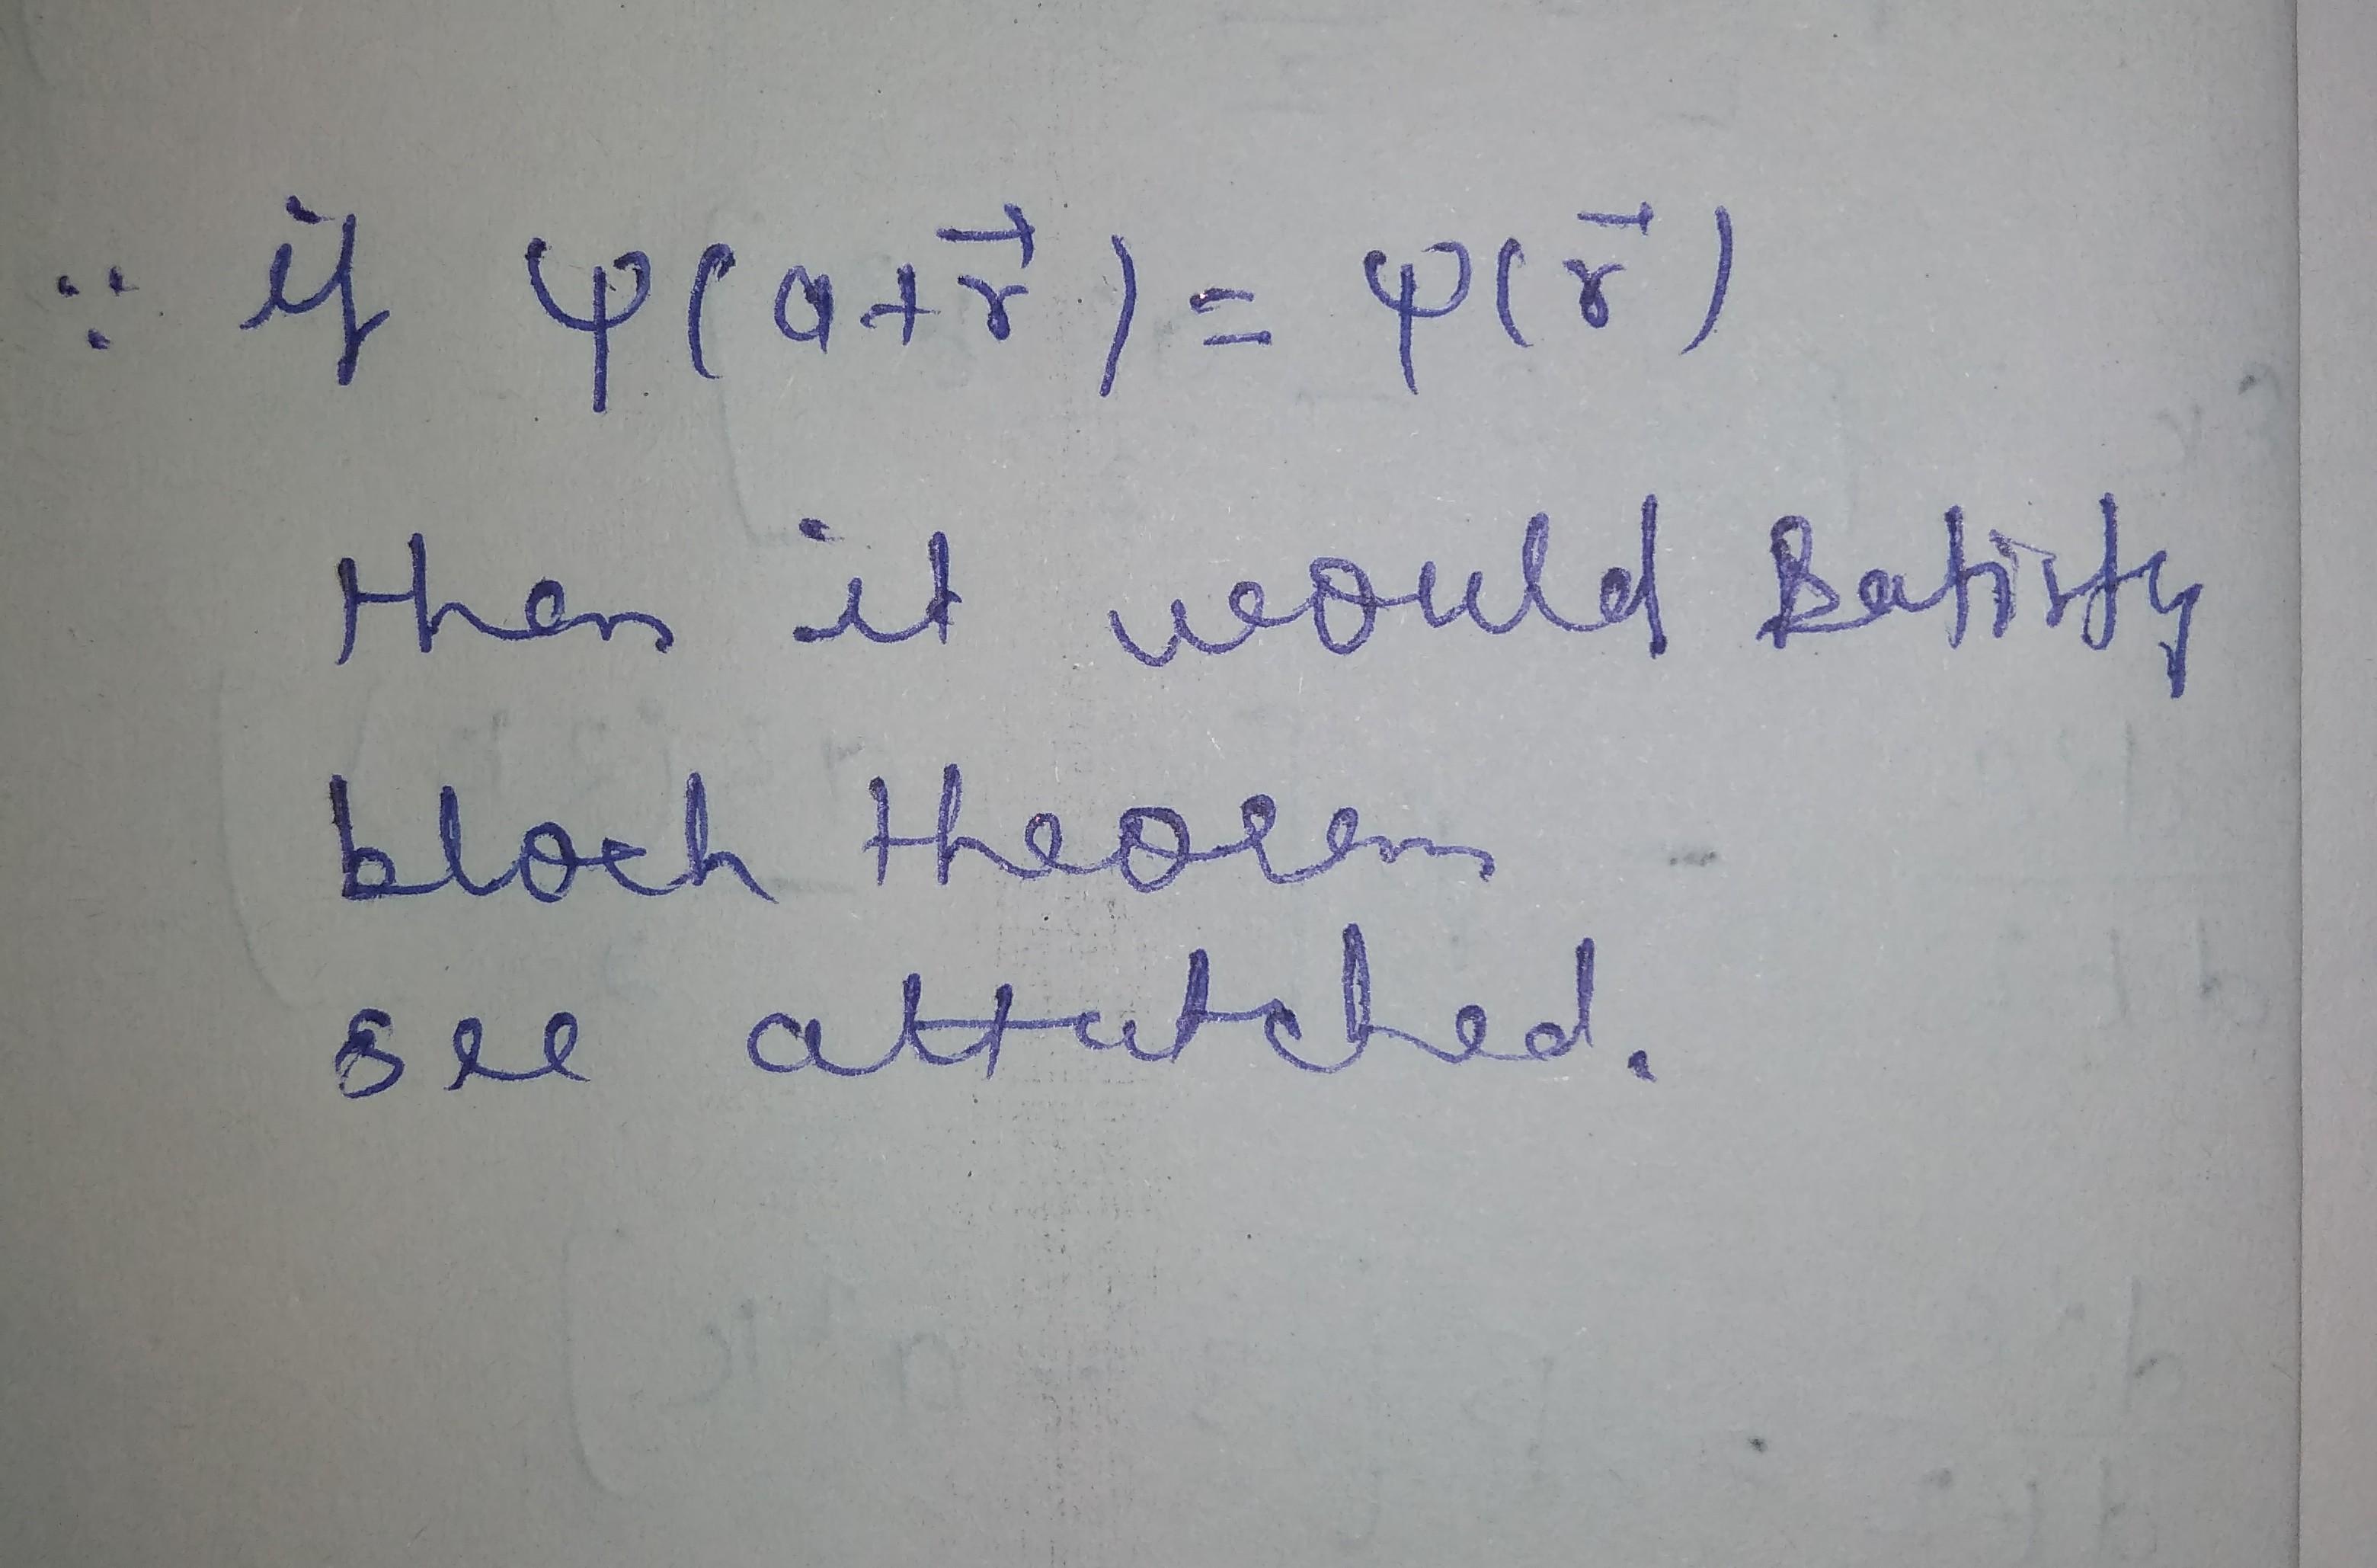 ∵ if ψ(a+r⃗) = ψ(r⃗)
then it would satisfy
bloch theorem
see attatched.